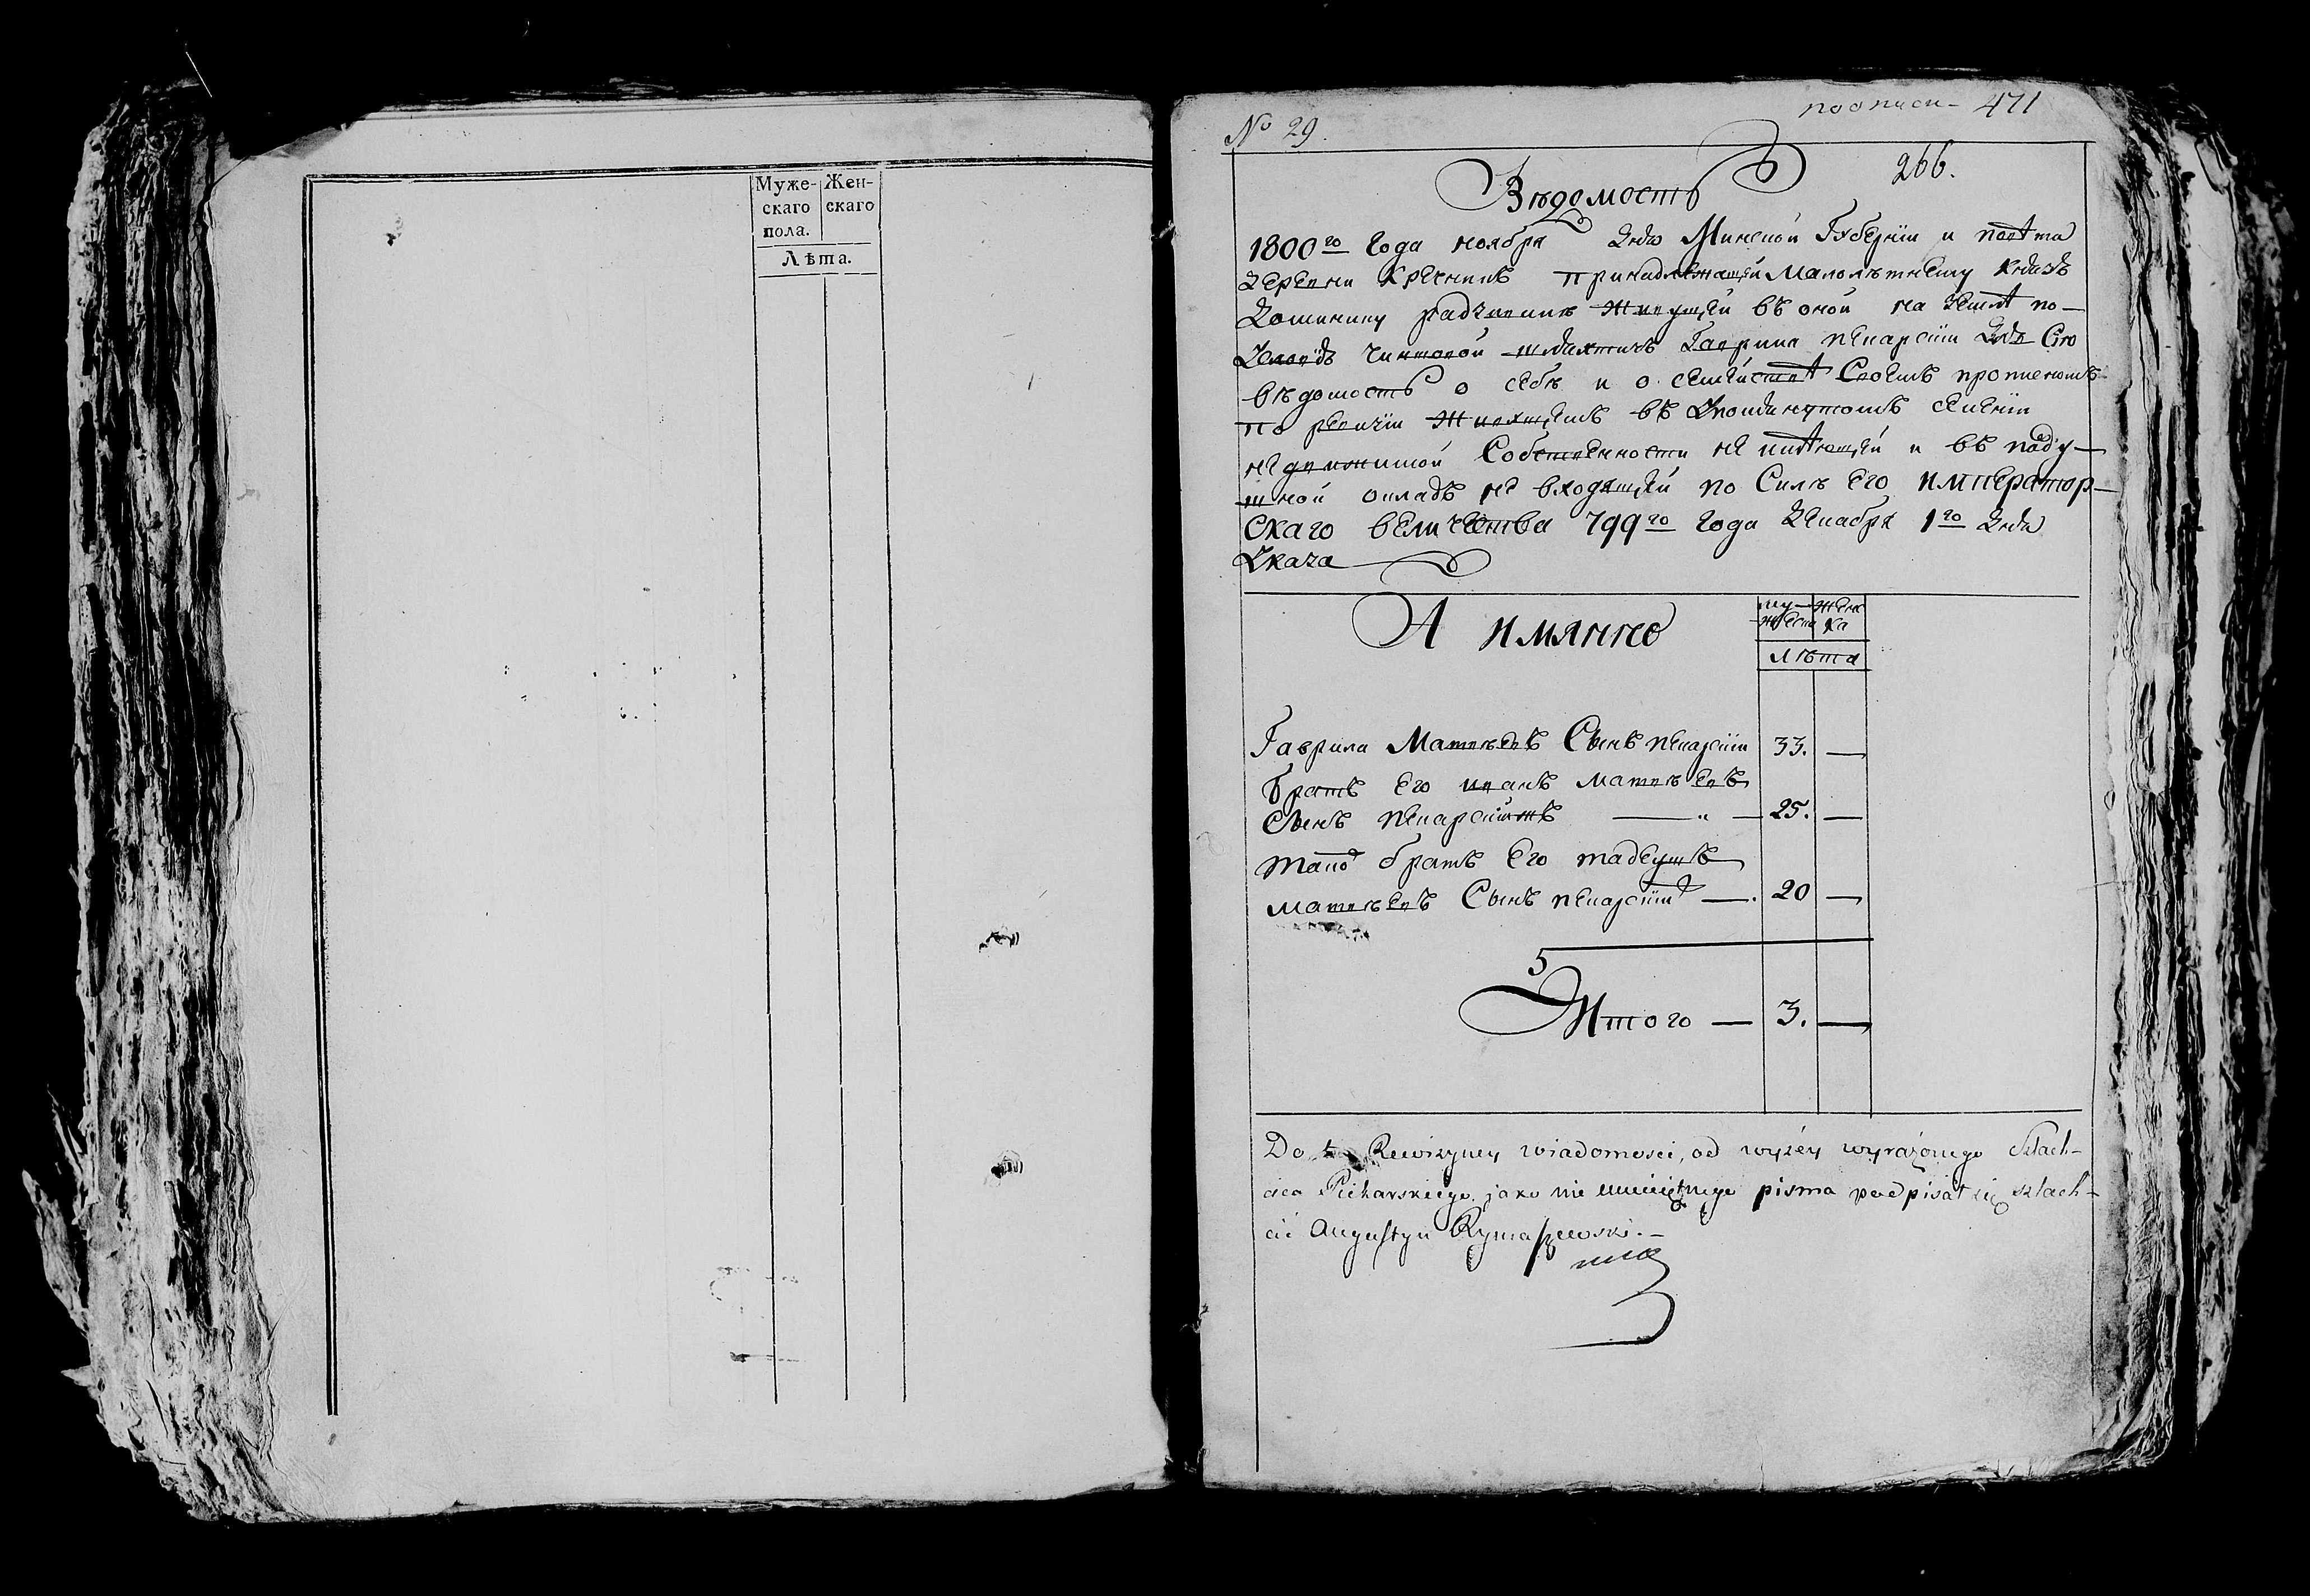 Муже- Жен-
скаго скаго
пола.
Лѣта.
№ 29.
471
266.
Вѣдомость
1800го Года ноября дня Минской Губерніи и повѣта
деревни принадлежащей Малолѣтнему Князь
Доминику радзивилъ живущей въ оной на земле по-
чиншовой шляхтичь Гаврила Пекарскій для Сто
вѣдомость о себѣ и о семействѣ Своемъ
по ревизіи живущемъ въ упомянутомъ селеніи
не движимой Собственности не имѣющей и въ поду-
шной окладъ не входящей по Силѣ Его император-
скаго величества 799го Года декабря 1го дня
Указа
А имянно
му- женс
жеска ка
лѣта
Гаврила Матвѣевъ Сынъ пекарскіи 33. —
братъ Его иванъ матвѣевъ
Сынъ пекарскій — 25. —
братъ Его тадеушъ
матвѣевъ Сынъ пекарскій — 20 —
5
Итого — 3. —
Do Rewizyney wiadomosci, od wyżéy wyrażonego Szlach-
cica Piekarskiego jako nie umieiętnego pisma podpisał się szlach-
cić Augustyn Rymaszewski. —
mk